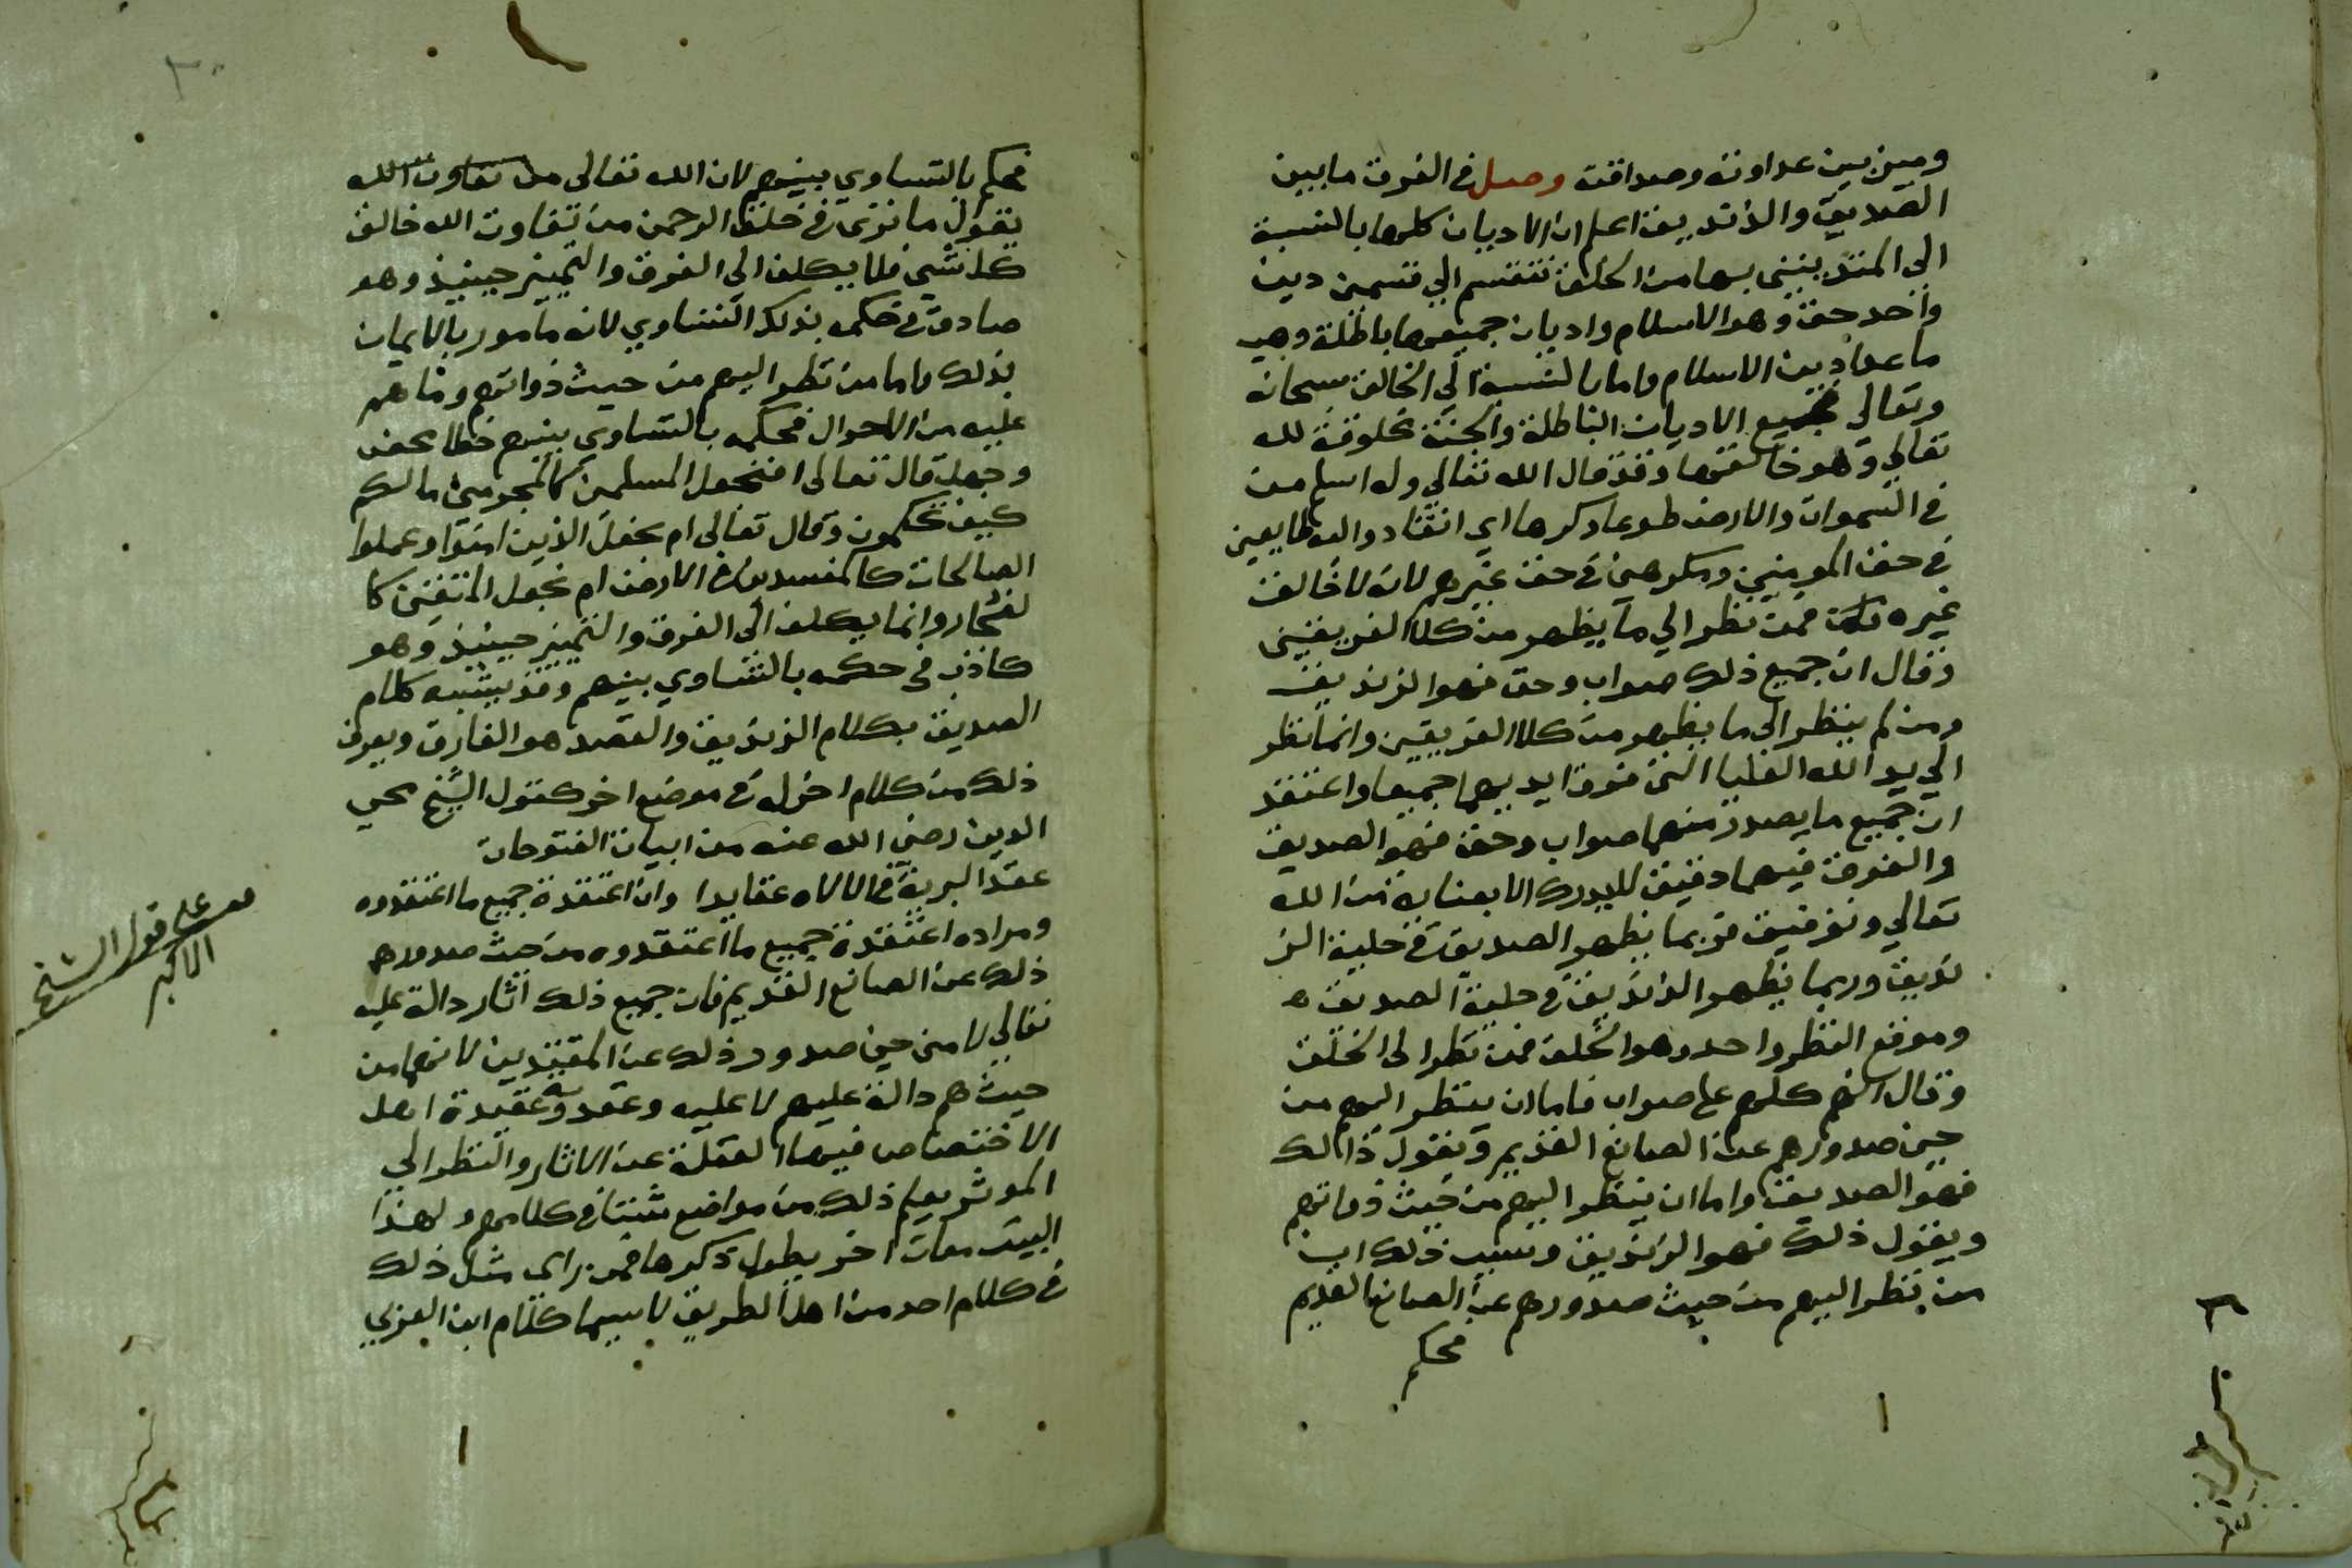 وميز بين عداوته وصداقته وصل في الفرق ما بين
الصديق والزنديق اعلم ان الاديان كلها بالنسبة
الي المتدينين بها من الخلق تنقسم الي قسمين دين
واحد حق وهو الاسلام واديان جميعها باطلة وهي
ما عدا دين الاسلام واما بالنسبة الي الخالق سبحانه
وتعالي فجميع الاديان الباطلة والحقة مخلوقة لله
تعالي وهو خالقها وقد قال الله تعالي وله اسلم من
في السموات والارض طوعا وكرها اي انقادوا له طايعين
في حق المومنين ومكرهين في حق غيرهم لانه لا خالق
غيره فمن نظر الي ما يظهر من كلا الفريقين
وقال ان جميع ذلك صواب وحق فهو الزنديق
ومن لم ينظر الي ما يظهر من كلا الفريقين وانما نظر
الي يد الله العليا التي فوق ايديهما جميعا واعتقد
ان جميع ما يصدر منهما صواب وحق فهو الصديق
والفرق فيهما دقيق لا يدرك الا بعناية من الله
تعالي وتوفيق فربما يظهر الصديق في حلية الز
نديق وربما يظهر الزنديق في حلية الصديق ه
وموقع النظر واحد وهو الخلق فمن نظر الى الخلق
وقال انهم كلهم على صواب فاما ان ينظر اليهم من
حين صدورهم عن الصانع القديم ويقول ذالك
فهو الصديق واما ان ينظر اليهم من حيث ذواتهم
ويقول ذلك فهو الزنديق وسبب ذلك ان
من نظر اليهم من حيث صدورهم عن الصانع القديم
فحكم
٣٠
فحكم بالتساوي بينهم لان الله تعالى
يقول ما ترى في خلق الرحمن من تفاوت الله خالق
كل شي فلا يكلف الي الفرق والتمييز حينيذ وهو
صادق في حكمه بذلك التساوي لانه مامور بالايمان
بذلك واما من نظر اليهم من حيث ذواتهم وما هم
عليه من الاحوال فحكمه بالتساوي بينهم خطا محض
وجهل قال تعالى افنجعل المسلمين كالمجرمين مالكم
كيف تحكمون وقال تعالى ام نجعل الذين امنوا وعملوا
الصالحات كالمفسدين في الارض ام نجعل المتقين كا
لفجار وانما يكلف الى الفرق والتمييز حينيذ وهو
كاذب في حكمه بالتساوي بينهم وقد يشتبه كلام
الصديق بكلام الزنديق والقصد هو الفارق ويعرف
ذلك من كلام اخر له في موضع اخر كقول الشيخ محي
الدين رضي الله عنه من ابيات الفتوحات
عقد البرية في الالاه عقايدا وانا اعتقدة جميع ما اعتقدوه
ومراده اعتقدة جميع ما اعتقدوه من حيث صدورهم
ذلك عن الصانع القديم فان جميع ذلك اثار دالة عليه
تعالي لا من حين صدور ذلك عن المقيدين لانها من
حيث هم دالة عليهم لا عليه وعقدوه عقيدة اهل
الاختصاص فيها الغفلة عن الاثار والنظر الي
الموثر يعلم ذلك من مواضع شتا في كلامهم ولهذا
البيت معان اخر يطول ذكرها فمن راى مثل ذلك
في كلام احد من اهل الطريق لاسيما كلام ابن العربي
على قول الشيخ
الاكبر